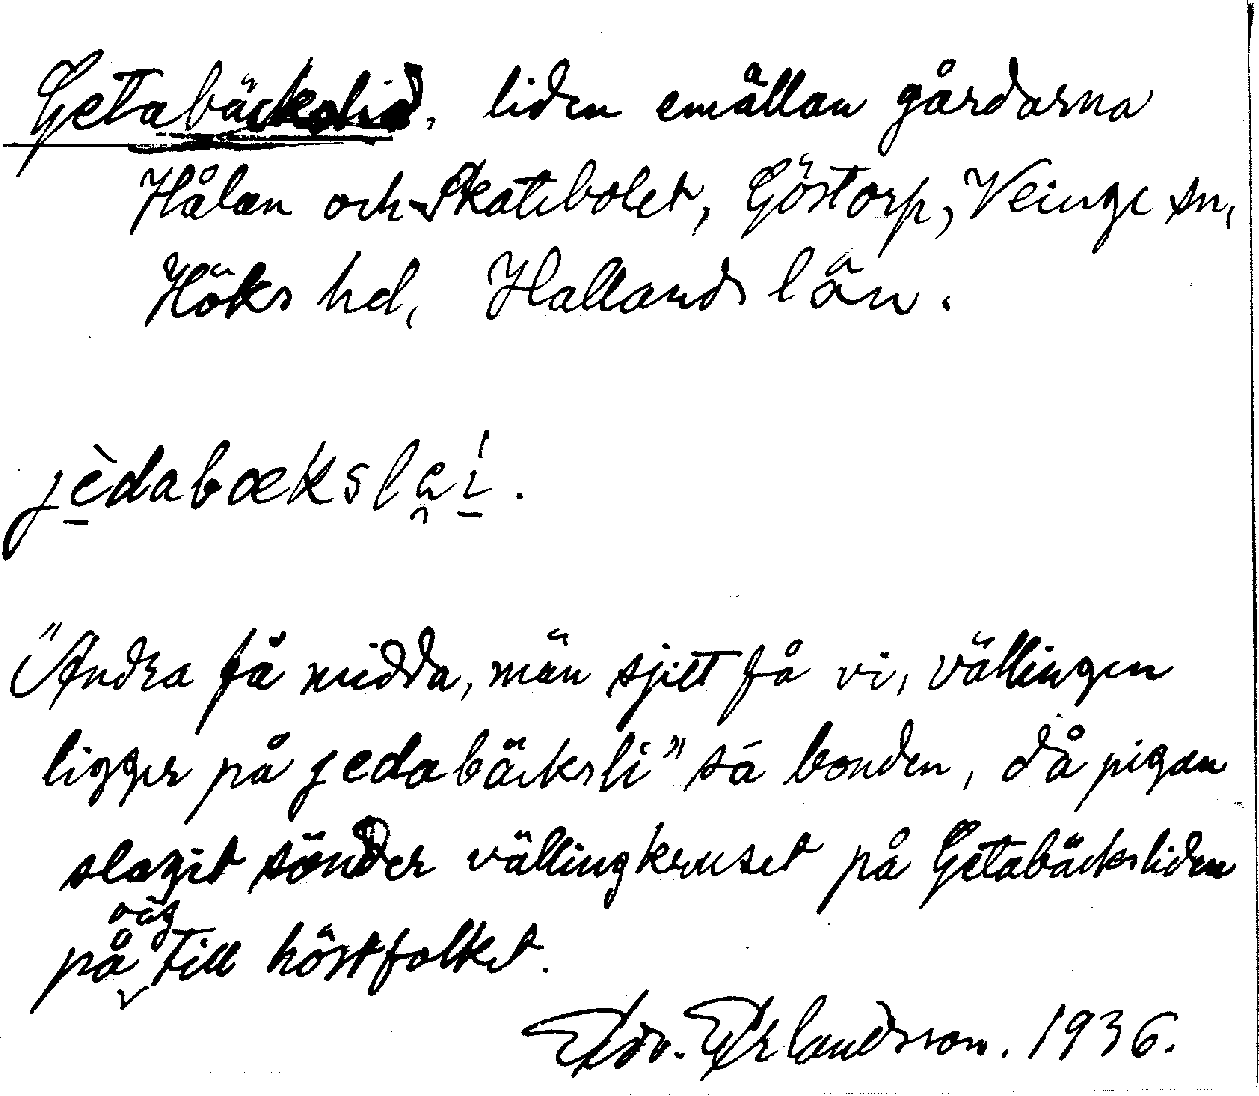 Getabäckslid, liden emällan gårdarna
Hålan och Skatebolet, Göstorp, Veinge sn,
Höks hd, Hallands län.
jèdabæksla̯i̠!.
"Andra få midda, män sjitt få vi, vällingen
ligger på jedabäcksli" sá bonden, då pigan
slagit sönder vällingkruset på Getabäcksliden
på väg till höstfolket.
Edv. Erlandsson. 1936.